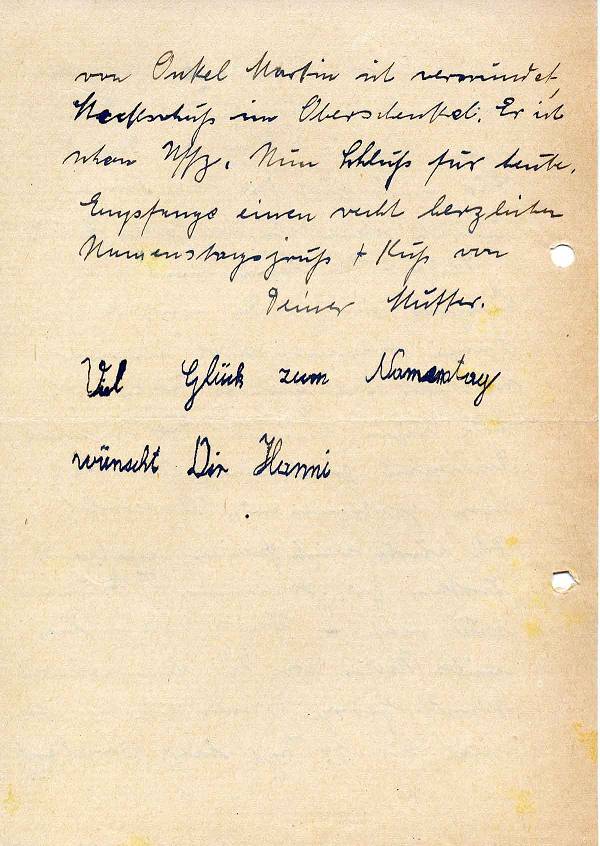 von Onkel Martin ist verwundet,
Steckschuß im Oberschenkel. Er ist
schon Uffz. Nun Schluß für heute.
Empfange einen recht herzlichen
Namenstagsgruß + Kuß von
Deiner Mutter.
Viel Glück zum Namenstag
wünscht Dir Hanni